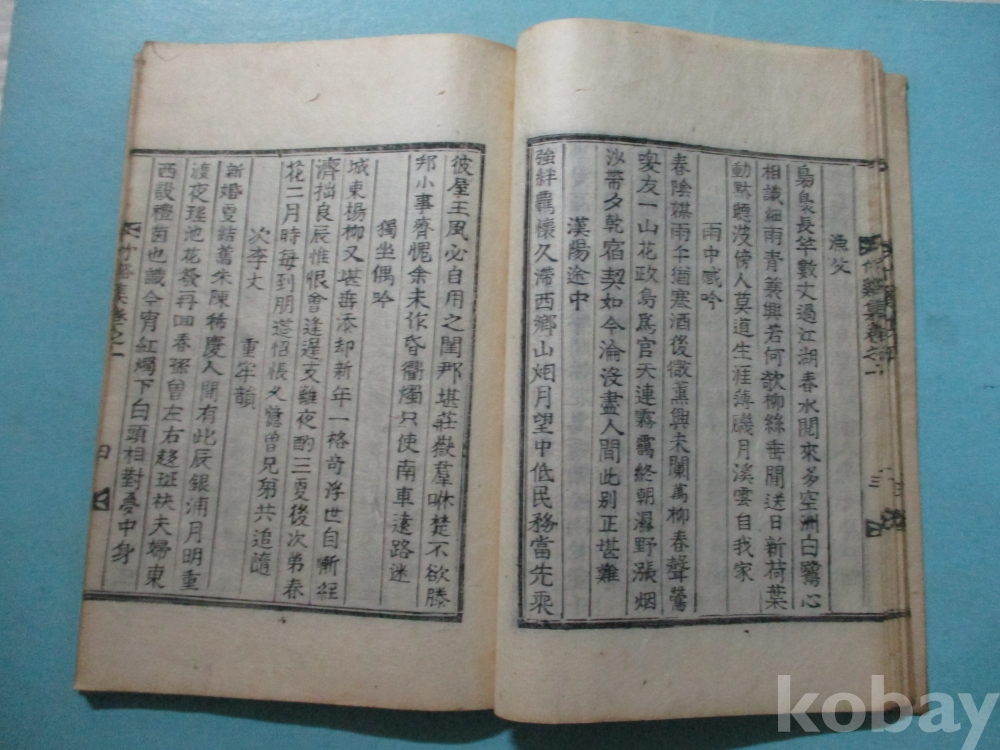 漁父
裊裊長竿數丈過江湖春水閱來多空洲白鷺心
相識細雨青蓑興若何欹柳絲垂聞送日新荷葉
動默聽波傍人莫道生涯薄磯月溪雲自我家
雨中感吟
春陰積雨午猶寒酒後微薰興未闌萬柳春聲鶯
喚友一山花政鳥為官天連霧靄終朝濕野漲烟
沙帶夕乾宿契如今淪沒盡人間此別正堪難
漢陽途中
強絆羈懷久滯西鄉山炤月望中低民務當先
彼屋王風必自用之閨那堪莊嶽羣咻楚不欲滕
邦小事齊愧余未作昏衢燭只使南車遠路迷
獨坐偶吟
城東楊柳又堪垂添却新年一格奇浮世自慚經
濟拙良辰惟恨會逢遲支離夜酌三夏後次第春
花二月時每到朋筵怊悵久憶曾兄弟共追隨
次李丈 重牢韻
新婚夏結舊朱陳稀慶人間有此辰銀浦月明重
渡夜瑤池花發再回春孫曾左右趍斑袂夫婦東
西設禮茵也識今宵紅燭下白頭相對憂中身
集卷之一
kobay